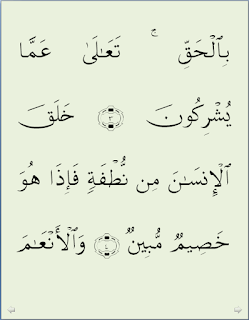 بِٱلْحَقِّ ۚ تَعَٰلَىٰ عَمَّا
يُشْرِكُونَ ۝٣ خَلَقَ
ٱلْإِنسَٰنَ مِن نُّطْفَةٍ فَإِذَا هُوَ
خَصِيمٌ مُّبِينٌ ۝٤ وَٱلْأَنْعَٰمَ